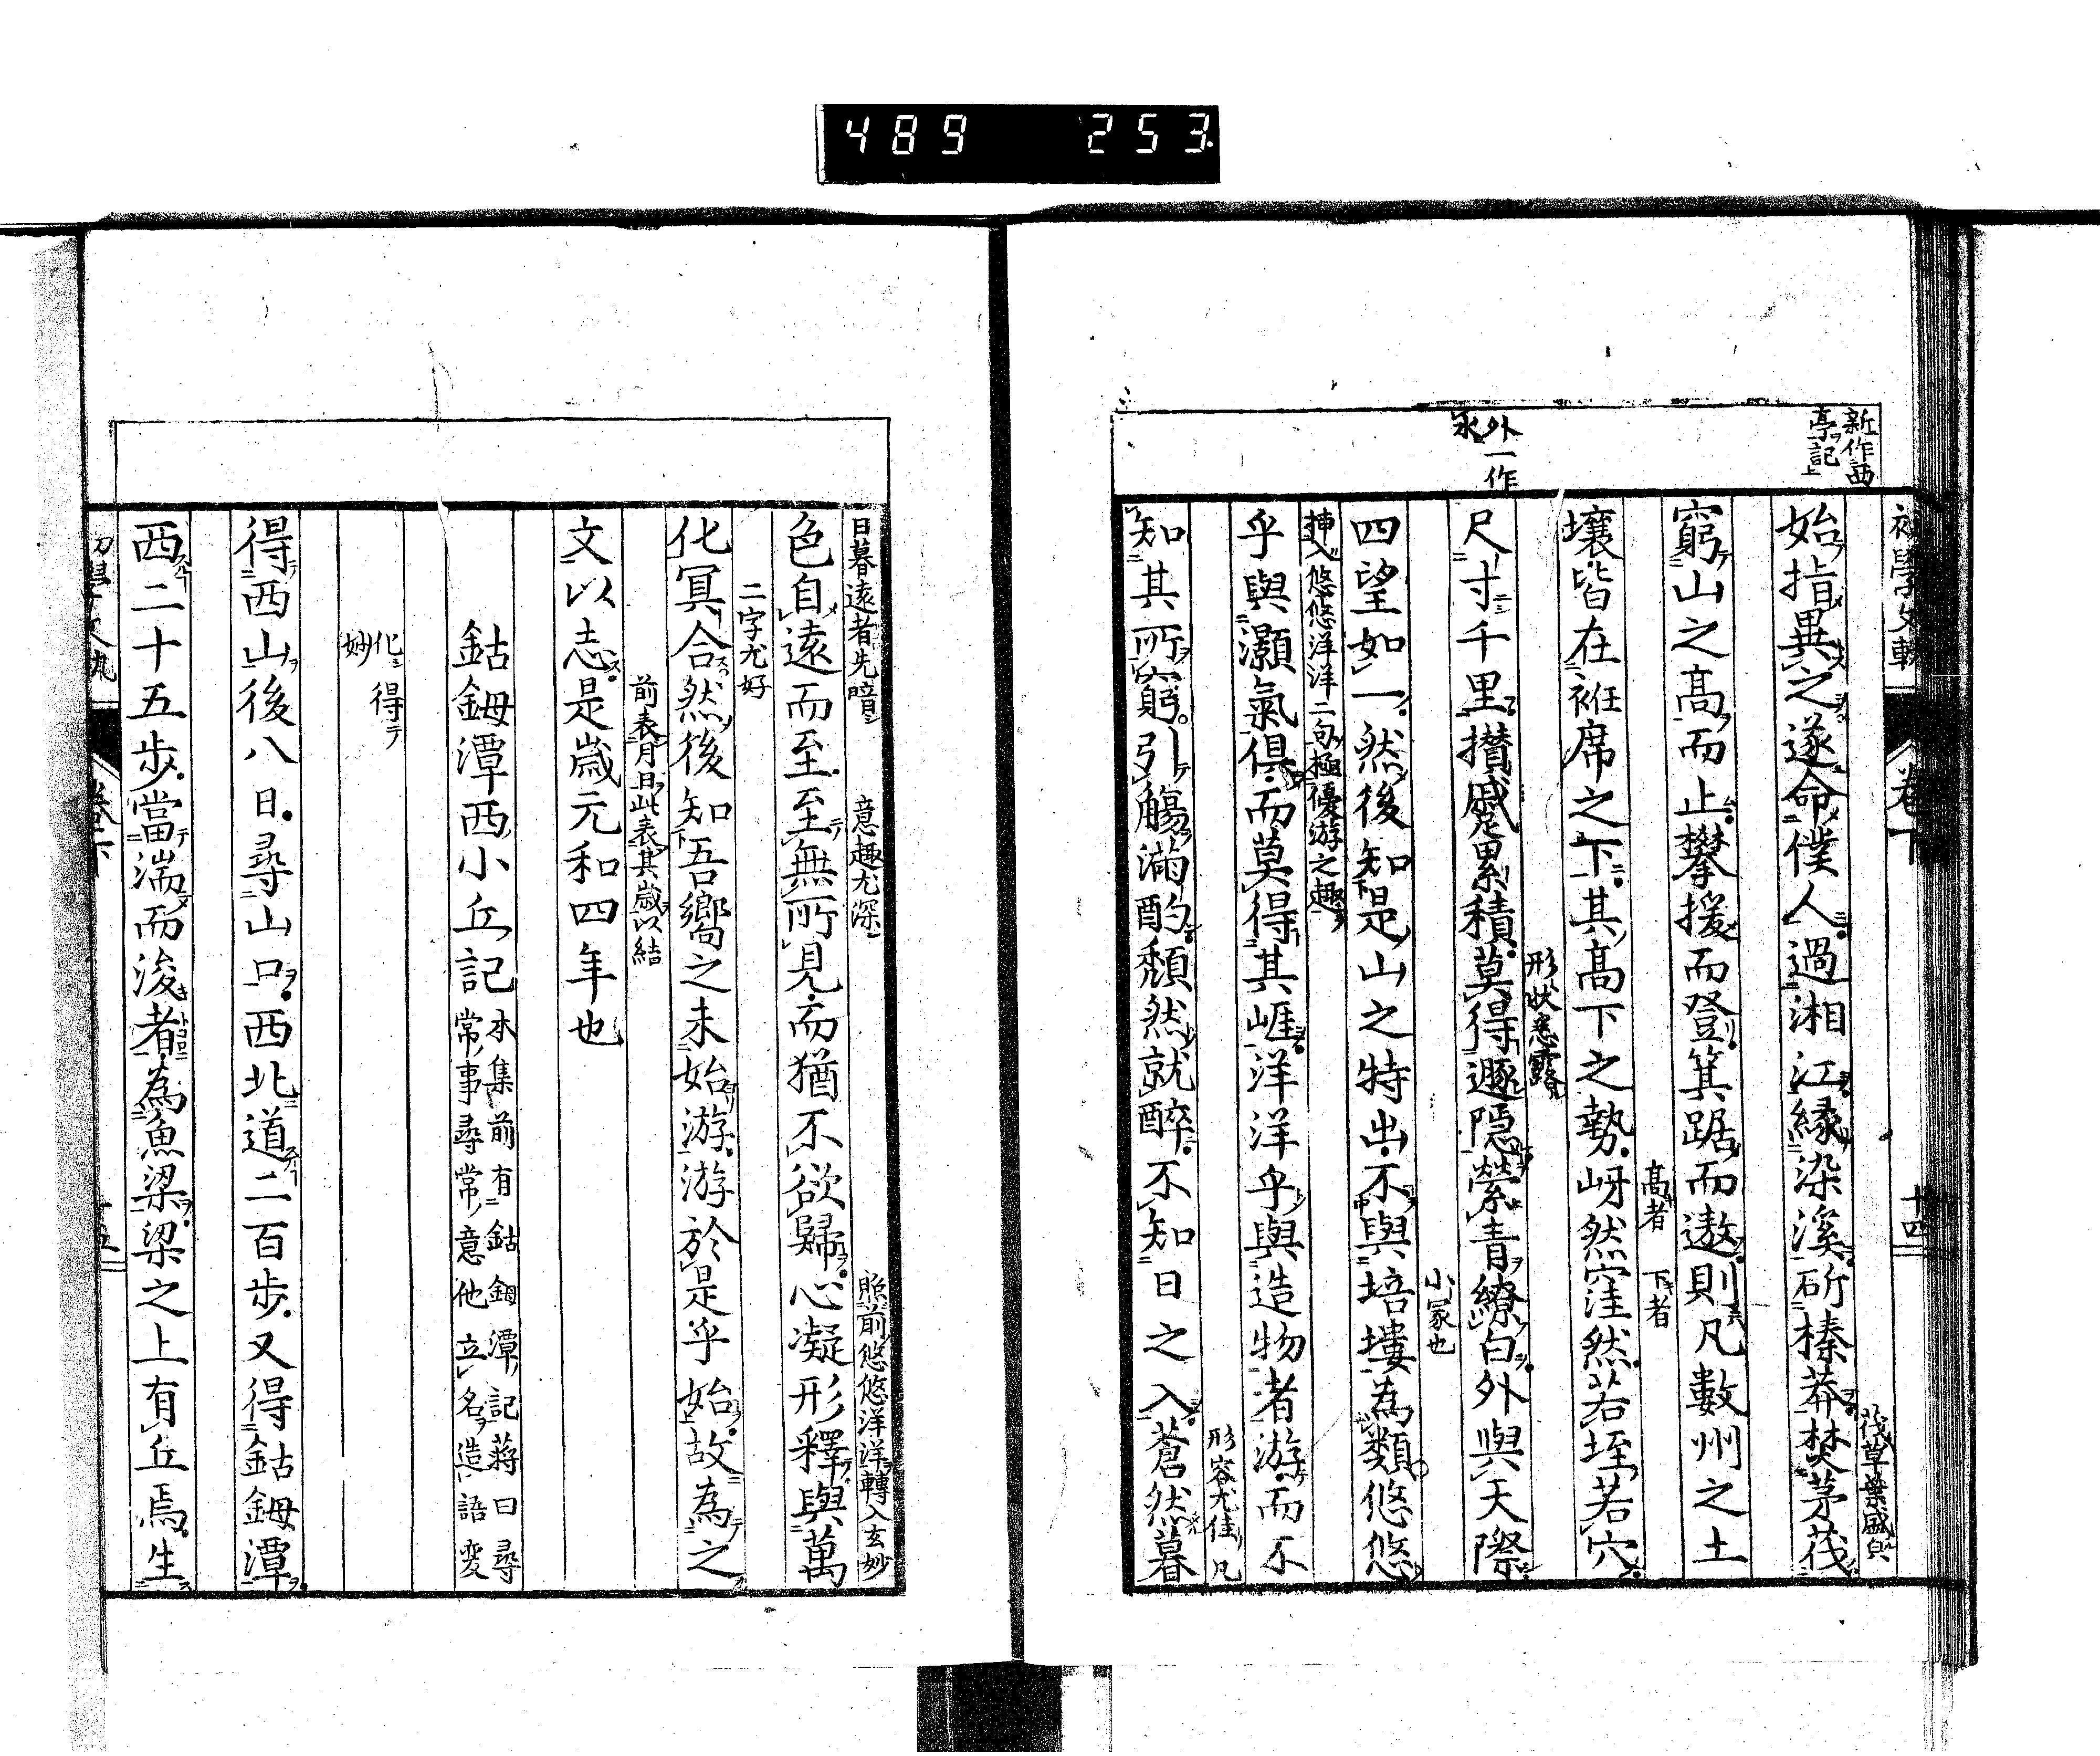 489 253
新作西
亭記
外一作
永
初學文軌
卷下
十四
茷草葉盛皃
始指異之遂命僕人過湘江緣染溪斫榛莽焚茅茷
窮山之高而止攀援而登箕踞而遨則凡數州之土
高者 下者
壤皆在衽席之下其高下之勢岈然窪然若垤若穴
形狀悉露
尺寸千里攅蹙累積莫得遯隠縈青繚白外與天際
小冢也
四望如一然後知是山之特出不與培塿為類悠悠
挿入悠悠洋洋二句極優游之趣
乎與灝氣俱而莫得其崕洋洋乎與造物者游而不
形容尤佳凡
知其所窮引觴滿酌頹然就醉不知日之入蒼然暮
日暮遠者先暗 意趣尤深 照前悠悠洋洋轉入玄妙
色自遠而至至無所見而猶不欲歸心凝形釋與萬
二字尤好
化冥合然後知吾嚮之未始游游於是乎始故為之
前表月日此表其歳以結
文以志是歳元和四年也
鈷鉧潭西小丘記
本集前有鈷鉧潭記蔣曰尋
常事尋常意他立名造語変
化得
妙
得西山後八日尋山口西北道二百步又得鈷鉧潭
西二十五步當湍而浚者為魚梁梁之上有丘焉生
卷下
十五